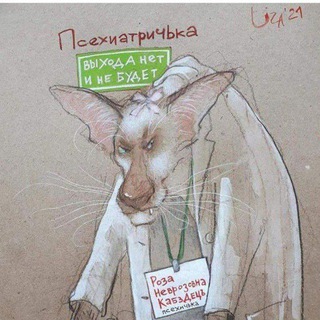 Псехиатричька
ВЫХОДА НЕТ
И НЕ БУДЕТ
Роза
Неврозовна
Кабздецъ
псехичька